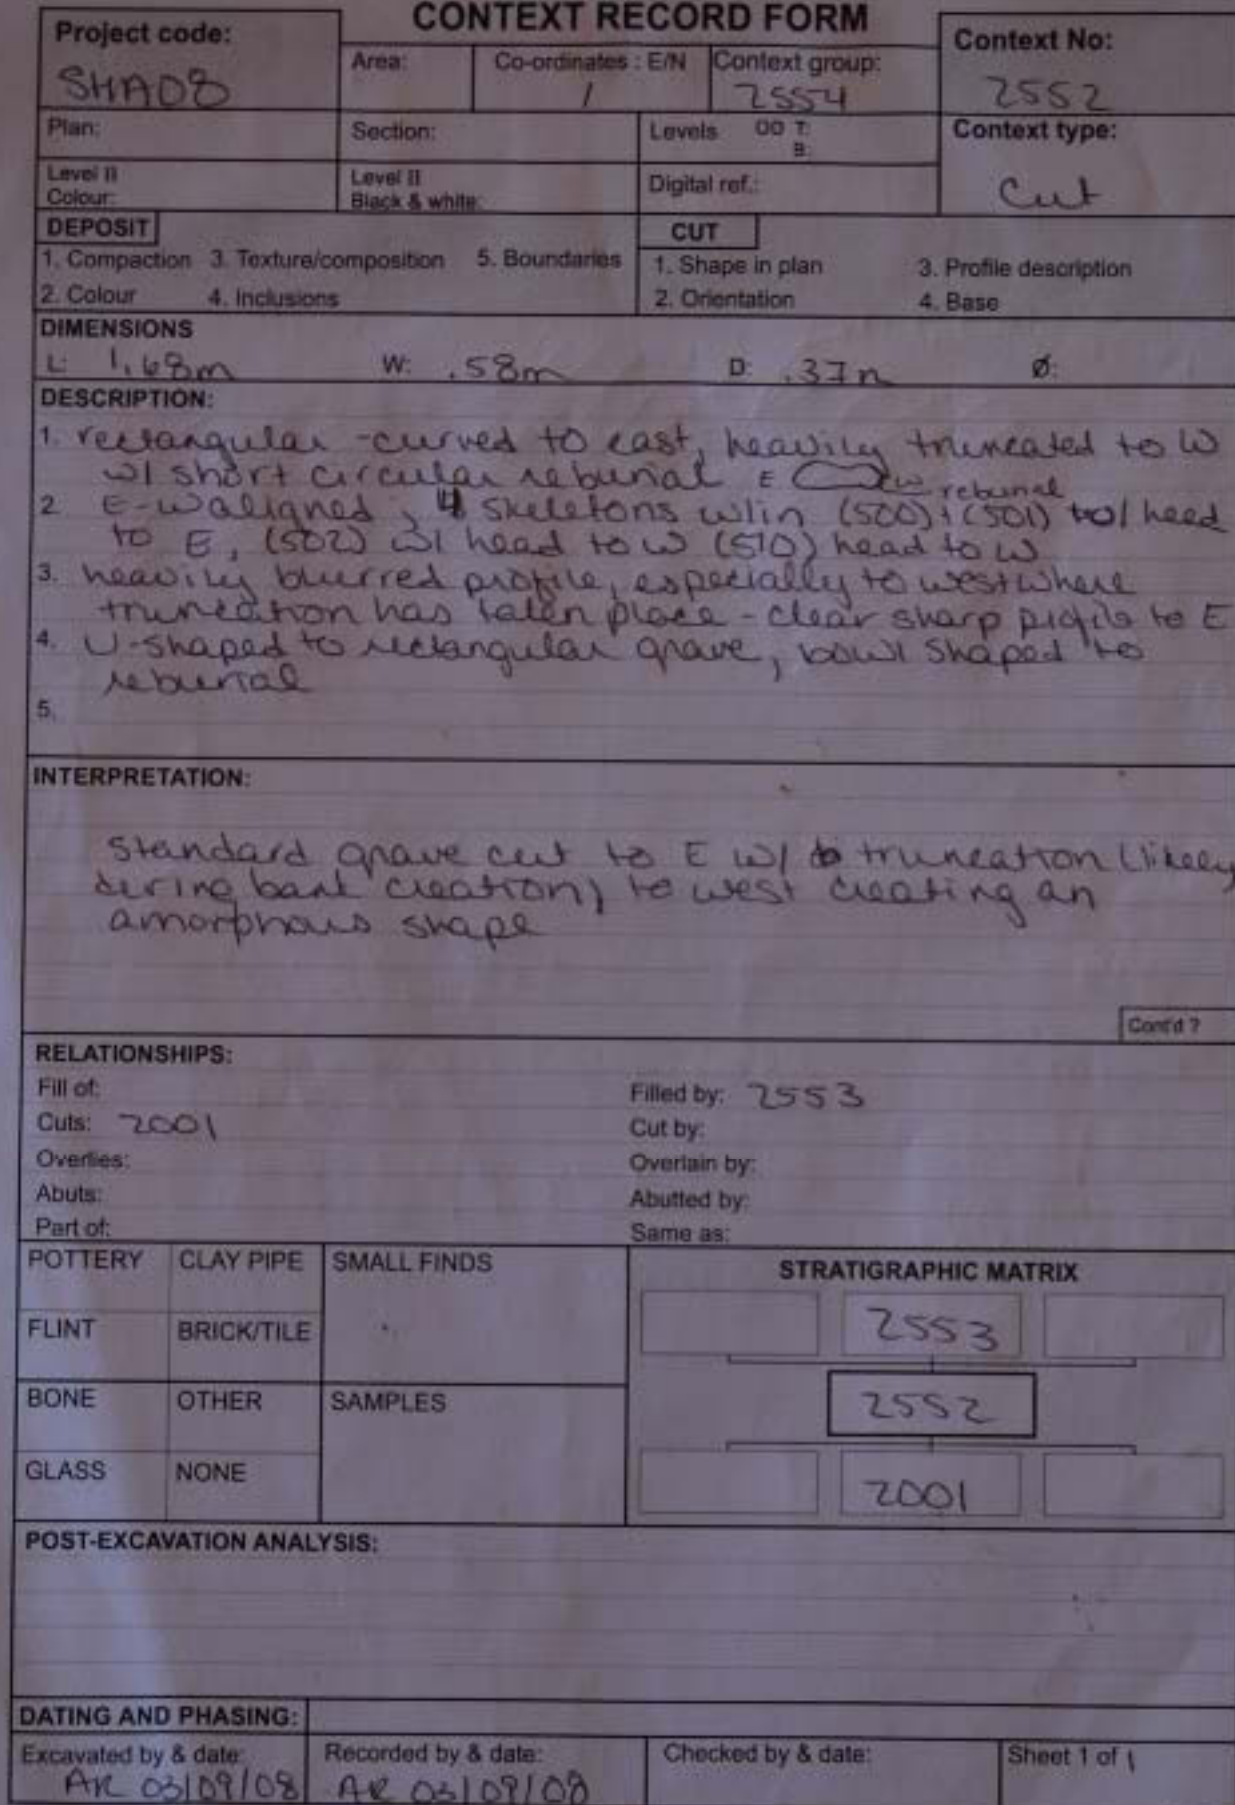 CONTEXT RECORD FORM
Project code:
SHA08
Area:
Co-ordinates : E/N
/
Context group:
2554
Context No:
2552
Plan:
Section:
Levels OD T:
B:
Context type:
Cut
Level II
Colour:
Level II
Black & white:
Digital ref.:
DEPOSIT
1. Compaction 3. Texture/composition 5. Boundaries
2. Colour 4. Inclusions
CUT
1. Shape in plan 3. Profile description
2. Orientation 4. Base
DIMENSIONS
L: 1.68m W: .58m D: .37m Ø:
DESCRIPTION:
1. rectangular - curved to east, heavily truncated to W
w/ short circular reburial E W reburial
2 E-W aligned, 4 skeletons w/in (500) + (501) w/ head
to E, (502) w/ head to W (510) head to W
3. heavily blurred profile, especially to west where
truncation has taken place - clear sharp profile to E
4. U-shaped to rectangular grave, bowl shaped to
reburial
5.
INTERPRETATION:
standard grave cut to E w/ truncation (likely
during bank creation) to west creating an
amorphous shape
Cont'd ?
RELATIONSHIPS:
Fill of:
Filled by: 2553
Cuts: 2001
Cut by:
Overlies:
Overlain by:
Abuts:
Abutted by:
Part of:
Same as:
POTTERY CLAY PIPE SMALL FINDS
FLINT BRICK/TILE
BONE OTHER SAMPLES
GLASS NONE
STRATIGRAPHIC MATRIX
2553
2552
2001
POST-EXCAVATION ANALYSIS:
DATING AND PHASING:
Excavated by & date:
AR 03/09/08
Recorded by & date:
AR 03/09/08
Checked by & date:
Sheet 1 of 1